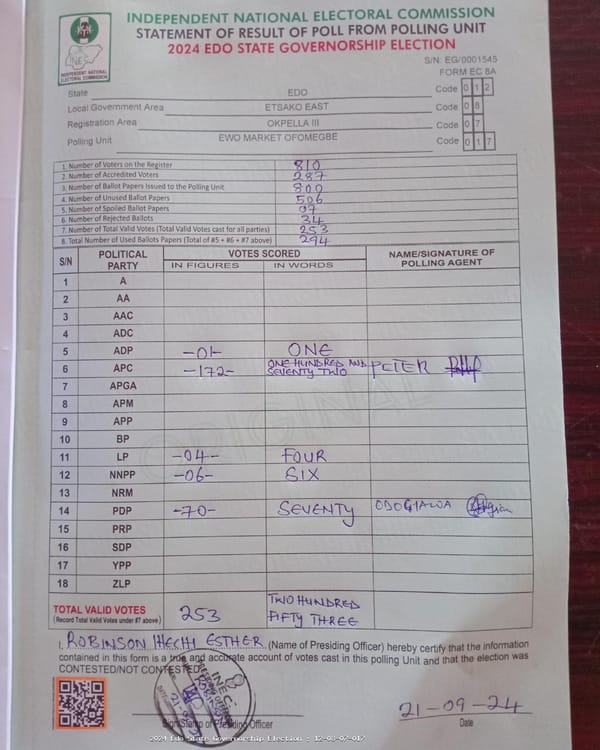 INDEPENDENT NATIONAL ELECTORAL COMMISSION
STATEMENT OF RESULT OF POLL FROM POLLING UNIT
2024 EDO STATE GOVERNORSHIP ELECTION
INEC
INDEPENDENT NATIONAL ELECTORAL COMMISSION
S/N: EG/0001545
FORM EC 8A
State EDO Code 0 1 2
Local Government Area ETSAKO EAST Code 0 8
Registration Area OKPELLA III Code 0 7
Polling Unit EWO MARKET OFOMEGBE Code 0 1 7
1. Number of Voters on the Register 810
2. Number of Accredited Voters 287
3. Number of Ballot Papers Issued to the Polling Unit 800
4. Number of Unused Ballot Papers 506
5. Number of Spoiled Ballot Papers 07
6. Number of Rejected Ballots 34
7. Number of Total Valid Votes (Total Valid Votes cast for all parties) 253
8. Total Number of Used Ballots Papers (Total of #5 + #6 + #7 above) 294
S/N POLITICAL PARTY VOTES SCORED NAME/SIGNATURE OF POLLING AGENT
IN FIGURES IN WORDS
1 A
2 AA
3 AAC
4 ADC
5 ADP -01- ONE
6 APC -172- ONE HUNDRED AND SEVENTY TWO PETER
7 APGA
8 APM
9 APP
10 BP
11 LP -04- FOUR
12 NNPP -06- SIX
13 NRM
14 PDP -70- SEVENTY ODOGIAWA
15 PRP
16 SDP
17 YPP
18 ZLP
ORIGINAL
TOTAL VALID VOTES 253 TWO HUNDRED
(Record Total Valid Votes under #7 above) FIFTY THREE
I, ROBINSON IHECHI ESTHER (Name of Presiding Officer) hereby certify that the information
contained in this form is a true and accurate account of votes cast in this polling Unit and that the election was
CONTESTED/NOT CONTESTED.
INEC
21-09-24
Sign/Stamp of Presiding Officer Date
2024 Edo State Governorship Election - 12-08-07-017